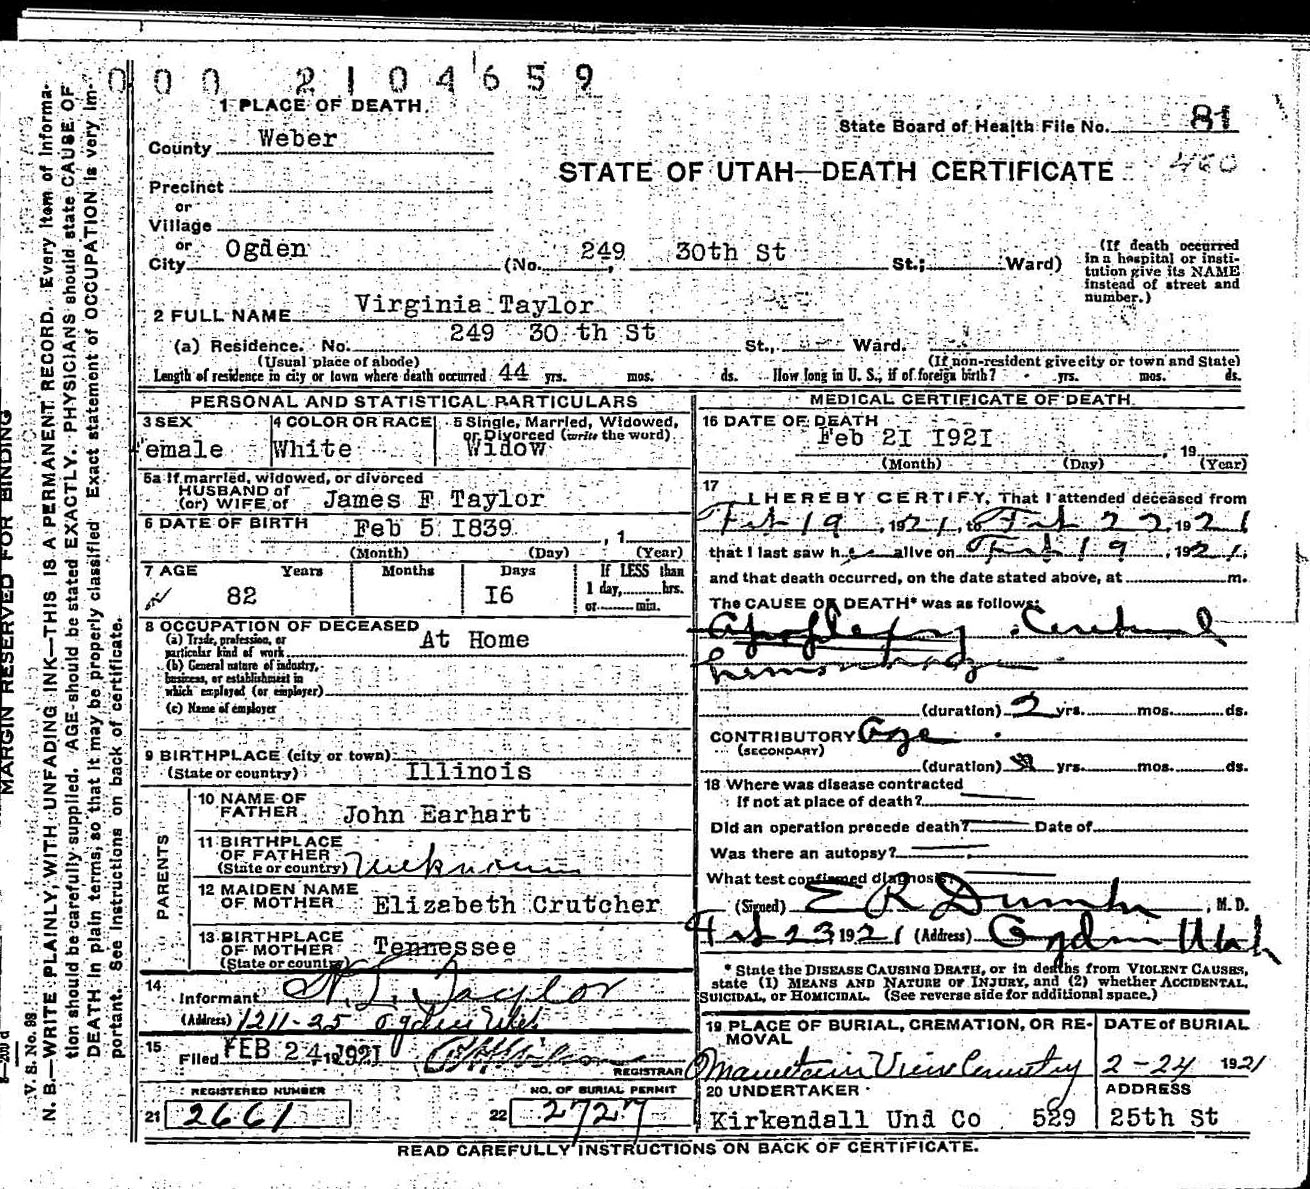 000 2104659
1 PLACE OF DEATH.
County Weber
State Board of Health File No. 81
STATE OF UTAH—DEATH CERTIFICATE 460
Precinct
or
Village
or
City Ogden (No. 249, 30th St St.; Ward)
(If death occurred in a hospital or institution give its NAME instead of street and number.)
2 FULL NAME Virginia Taylor
(a) Residence. No. 249 30 th St St., Ward.
(Usual place of abode) (If non-resident give city or town and State)
Length of residence in city or town where death occurred 44 yrs. mos. ds. How long in U. S., if of foreign birth? yrs. mos. ds.
PERSONAL AND STATISTICAL PARTICULARS
3 SEX 4 COLOR OR RACE 5 Single, Married, Widowed, or Divorced (write the word)
emale White Widow
5a If married, widowed, or divorced
HUSBAND of
(or) WIFE of James F Taylor
6 DATE OF BIRTH Feb 5 I839, 1
(Month) (Day) (Year)
7 AGE Years Months Days If LESS than
82 I6 1 day, hrs.
or min.
8 OCCUPATION OF DECEASED
(a) Trade, profession, or
particular kind of work At Home
(b) General nature of industry,
business, or establishment in
which employed (or employer)
(c) Name of employer
9 BIRTHPLACE (city or town)
(State or country) Illinois
PARENTS
10 NAME OF
FATHER John Earhart
11 BIRTHPLACE
OF FATHER
(State or country) Unknown
12 MAIDEN NAME
OF MOTHER Elizabeth Crutcher
13 BIRTHPLACE
OF MOTHER Tennessee
(State or country)
14
Informant N. L. Taylor
(Address) 1211-25 Ogden Utah
15
Filed FEB 24 1921
REGISTRAR
REGISTERED NUMBER NO. OF BURIAL PERMIT
21 2661 22 2727
MEDICAL CERTIFICATE OF DEATH.
16 DATE OF DEATH
Feb 2I I92I, 19
(Month) (Day) (Year)
17
I HEREBY CERTIFY, That I attended deceased from
Feb 19, 1921, to Feb 22, 1921
that I last saw her alive on Feb 19, 1921,
and that death occurred, on the date stated above, at m.
The CAUSE OF DEATH* was as follows:
Apoplexy. Cerebral
hemorrhage
(duration) 2 yrs. mos. ds.
CONTRIBUTORY Age.
(SECONDARY)
(duration) yrs. mos. ds.
18 Where was disease contracted
If not at place of death?
Did an operation precede death? Date of
Was there an autopsy?
What test confirmed diagnosis?
(Signed) E R Dumke, M. D.
Feb 23, 1921 (Address) Ogden Utah
* State the DISEASE CAUSING DEATH, or in deaths from VIOLENT CAUSES,
state (1) MEANS AND NATURE OF INJURY, and (2) whether ACCIDENTAL,
SUICIDAL, or HOMICIDAL. (See reverse side for additional space.)
19 PLACE OF BURIAL, CREMATION, OR RE-
MOVAL
Mountain View Cemetery
DATE OF BURIAL
2-24 1921
20 UNDERTAKER ADDRESS
Kirkendall Und Co 529 25th St
READ CAREFULLY INSTRUCTIONS ON BACK OF CERTIFICATE.
MARGIN RESERVED FOR BINDING
V. S. No. 98
N. B.—WRITE PLAINLY, WITH UNFADING INK—THIS IS A PERMANENT RECORD. Every item of informa-
tion should be carefully supplied. AGE should be stated EXACTLY. PHYSICIANS should state CAUSE OF
DEATH in plain terms, so that it may be properly classified. Exact statement of OCCUPATION is very im-
portant. See instructions on back of certificate.